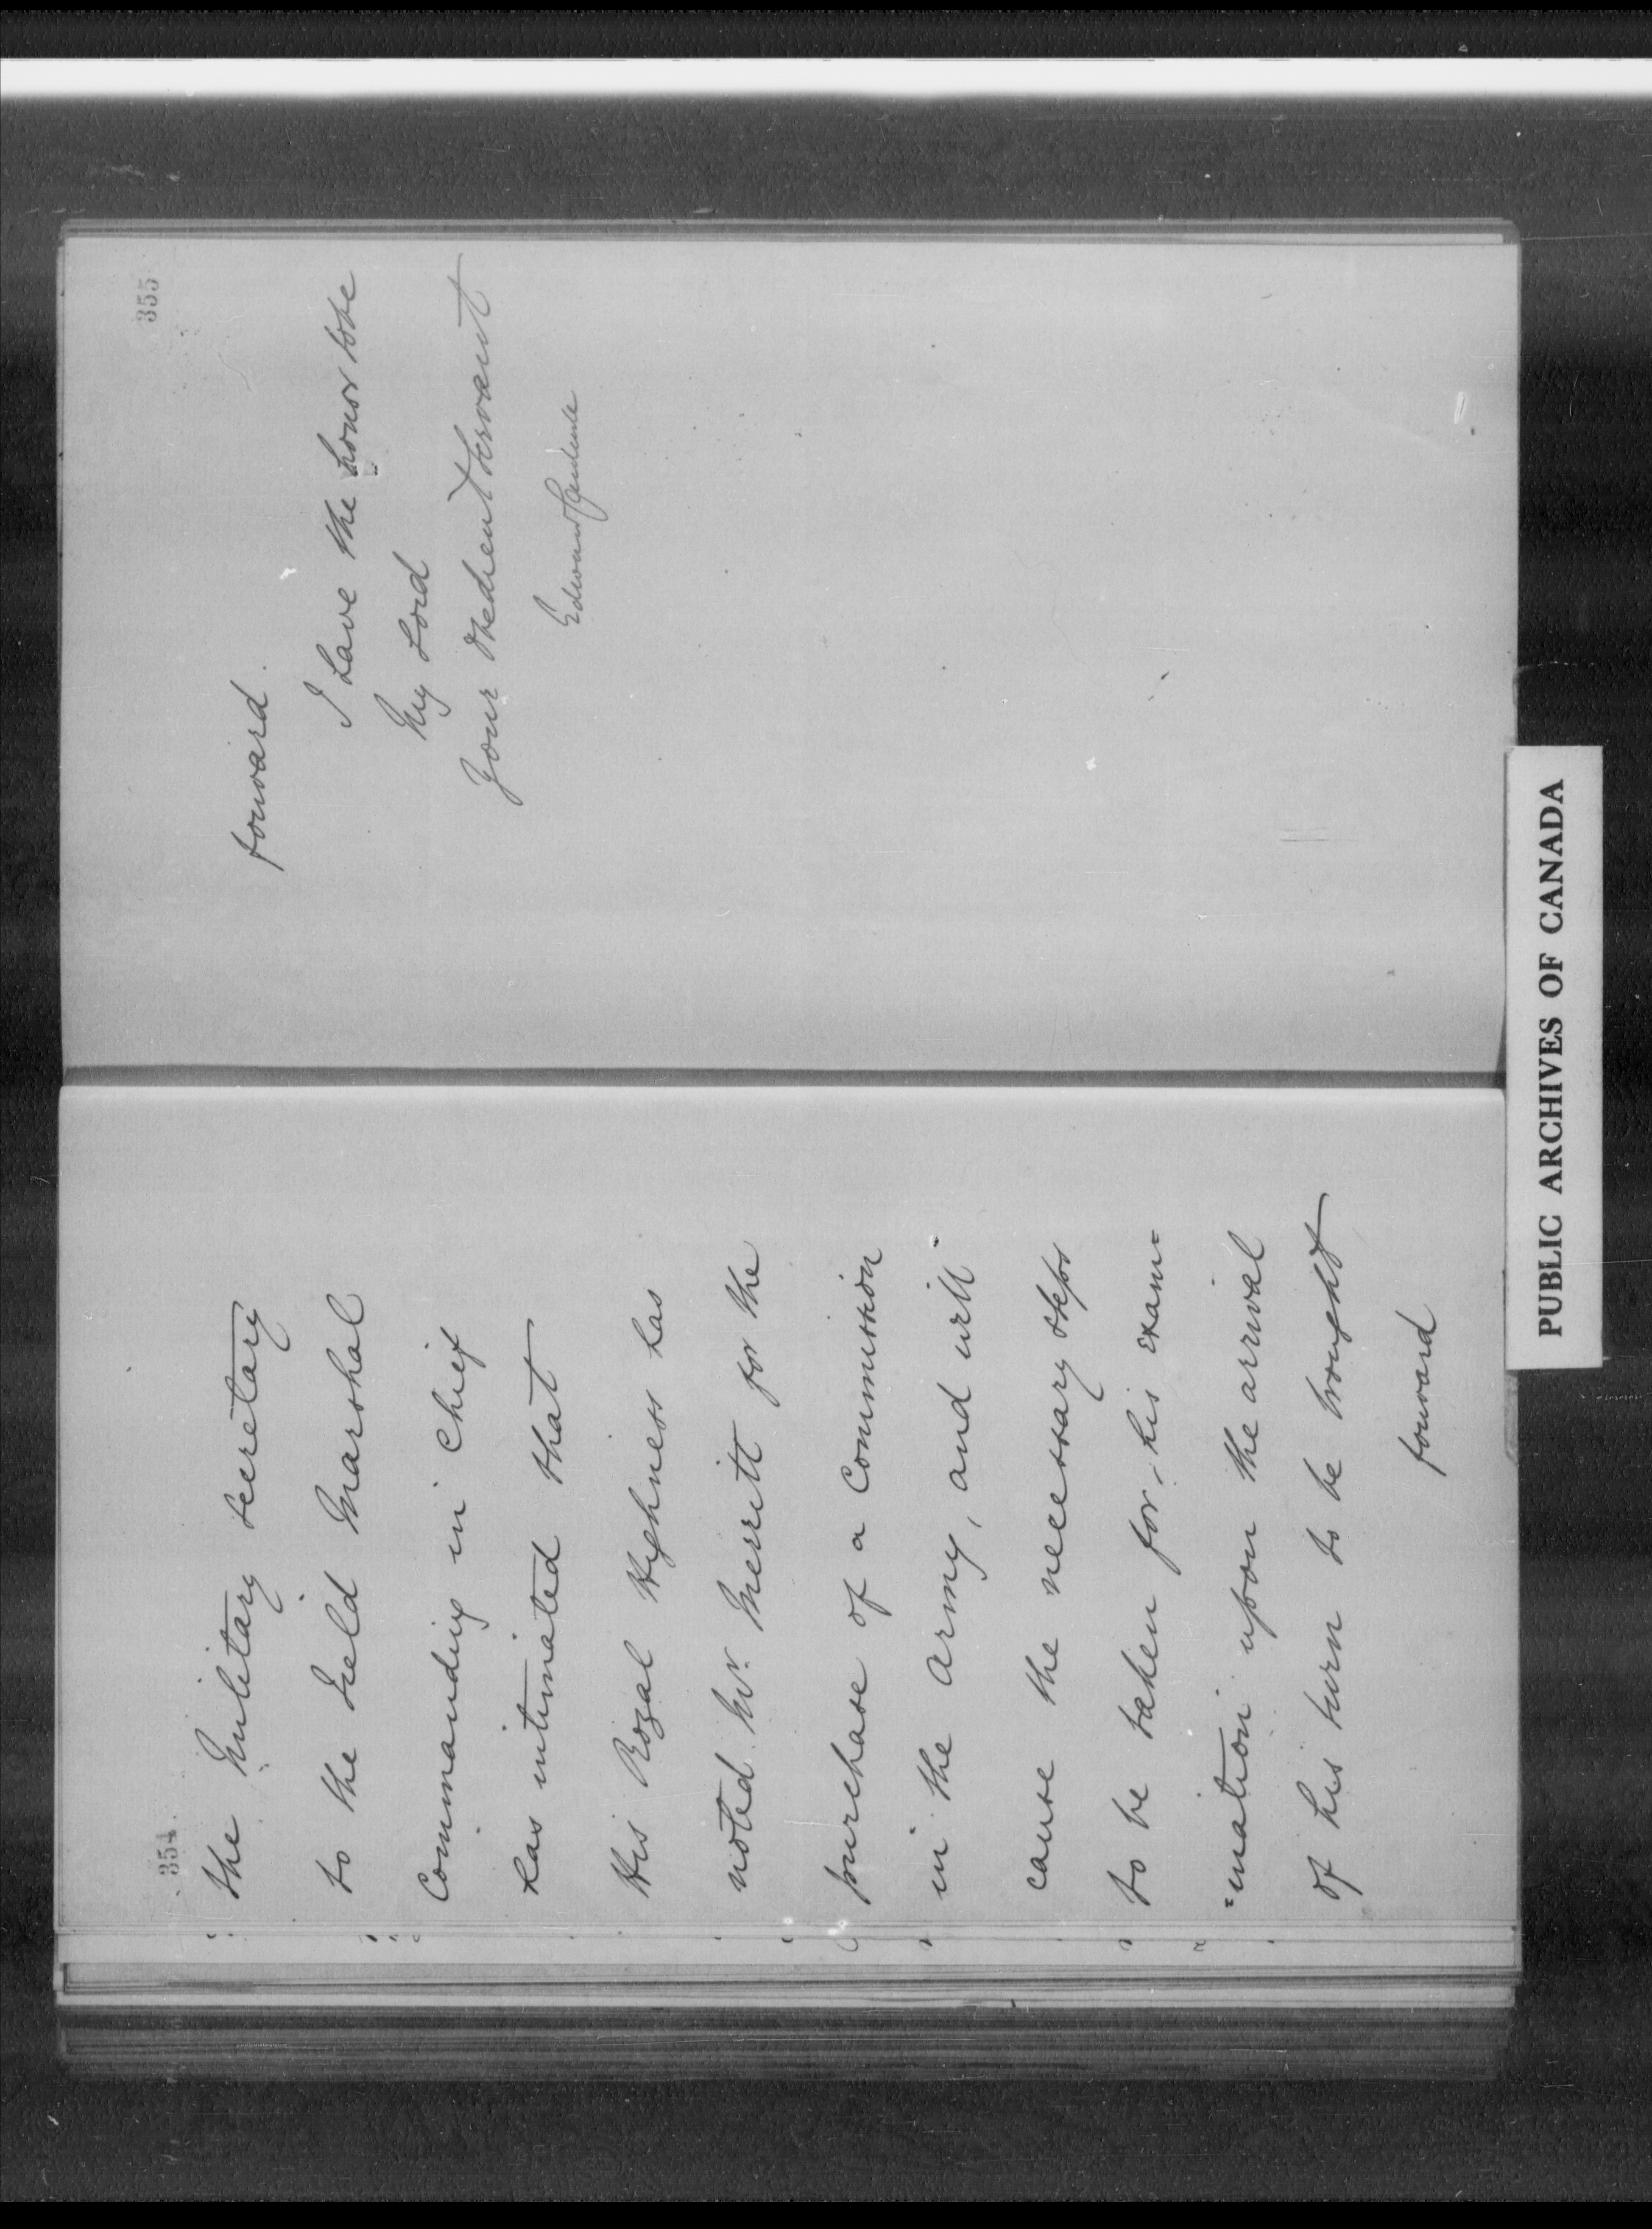 354
the Military Secretary
to the Field Marshal
Commanding in Chief
has intimated that
His Royal Highness has
noted Mr. Merritt for the
purchase of a Commission
in the Army, and will
cause the necessary steps
to be taken for his exam=
=ination upon the arrival
of his turn to be brought
forward
355
forward.
I have the honor to be
My Lord
Your Obedient Servant
Edward
PUBLIC ARCHIVES OF CANADA